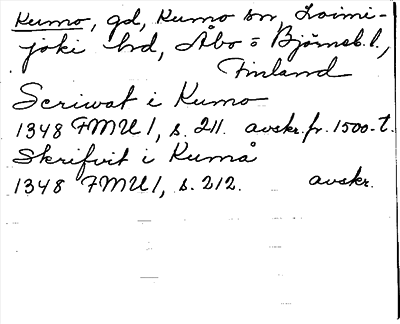 Kumo, gd, Kumo sn, Loimi-
joki hd, Åbo = Björneb. l.,
Finland
Scriwat i Kumo
1348 FMU 1, s. 211. avskr. fr. 1500-t.
Skrifvit i Kumå
1348 FMU 1, s. 212. avskr.